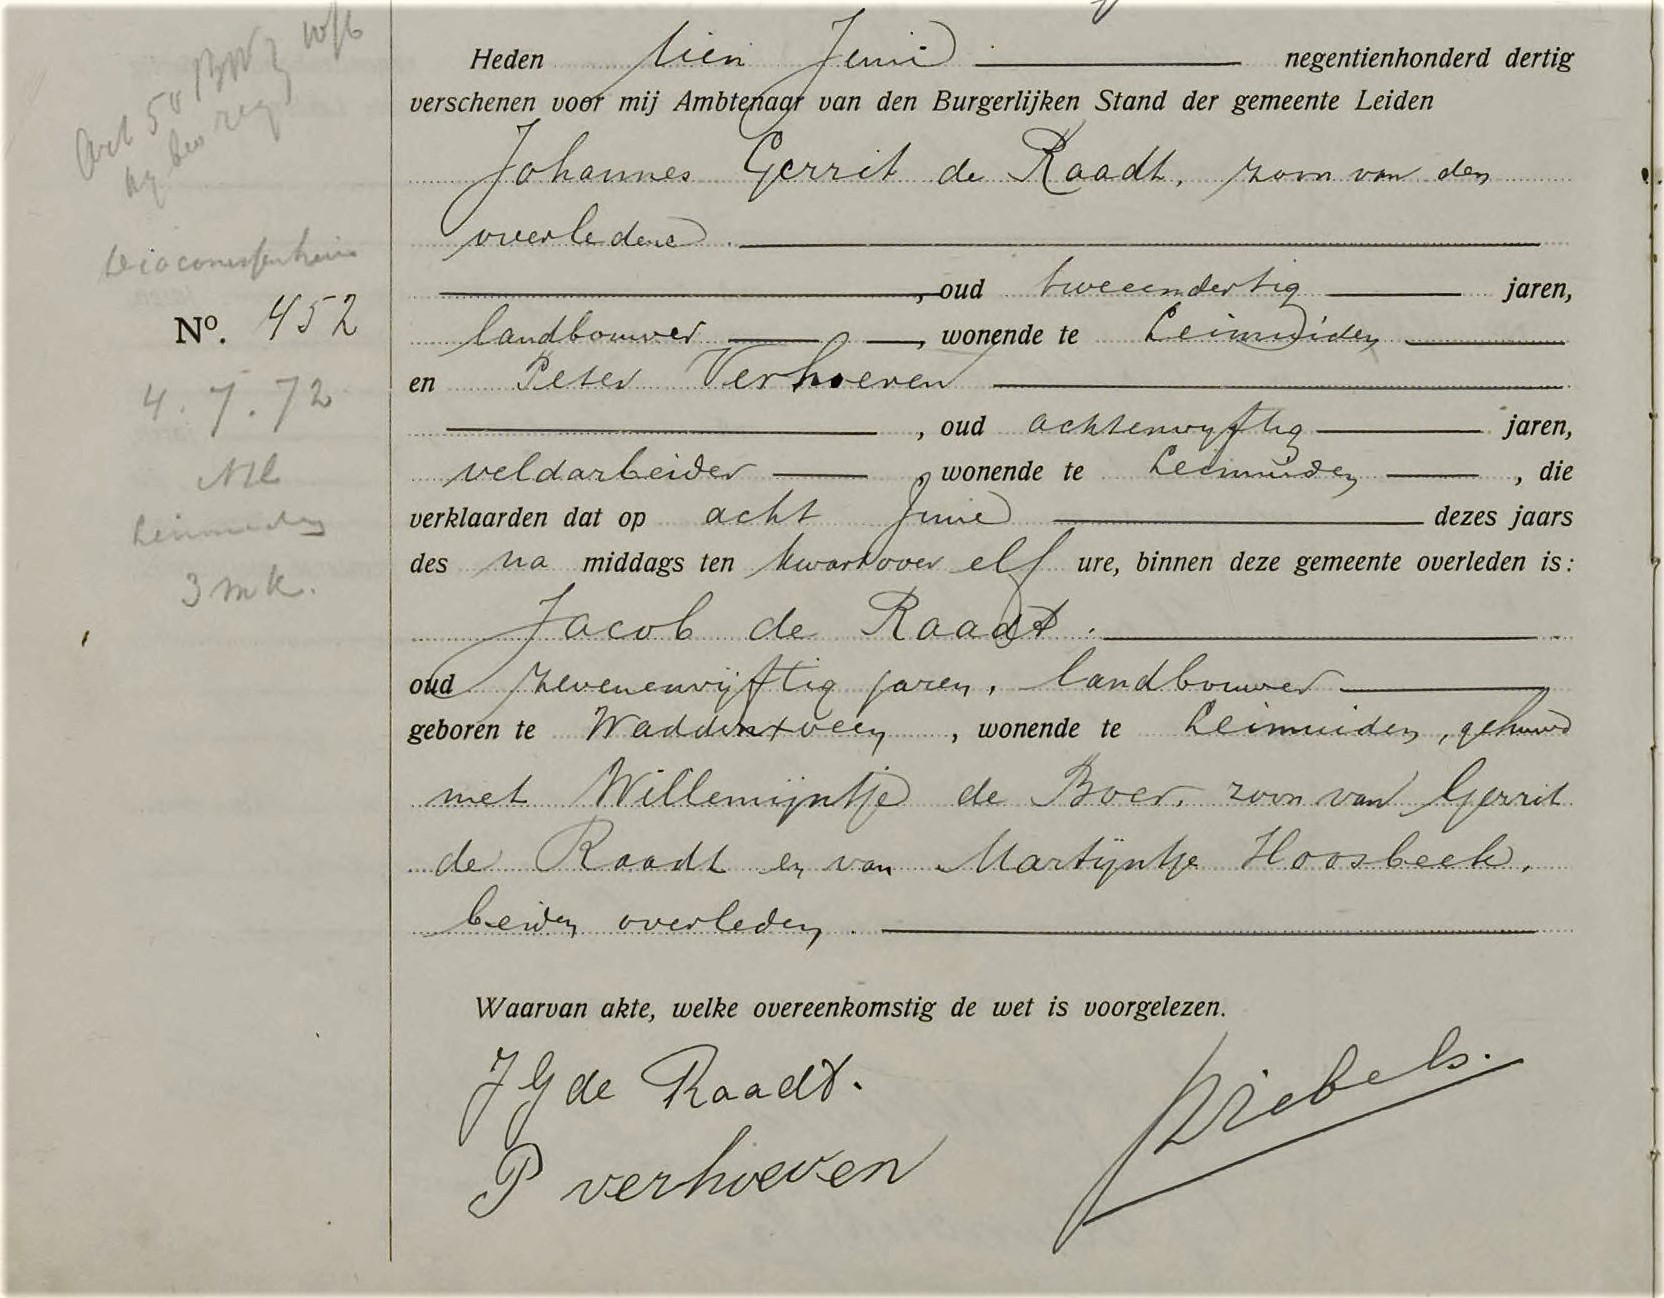 Art 50 BW 10/6
Diaconessenhuis
Nº. 452
4. 7. 72
NH
Leimuiden
3 mk.
Heden tien Juni negentienhonderd dertig
verschenen voor mij Ambtenaar van den Burgerlijken Stand der gemeente Leiden
Johannes Gerrit de Raadt, zoon van den
overledene
, oud tweeendertig jaren,
landbouwer , wonende te Leimuiden
en Peter Verhoeven
, oud achtenvyftig jaren,
veldarbeider , wonende te Leimuiden , die
verklaarden dat op acht Juni dezes jaars
des na middags ten kwart over elf ure, binnen deze gemeente overleden is:
Jacob de Raadt.
oud zevenenvijftig jaren, landbouwer
geboren te Waddinxveen , wonende te Leimuiden, gehuwd
met Willemijntje de Boer, zoon van Gerrit
de Raadt en van Martijntje Hoosbeek,
beiden overleden.
Waarvan akte, welke overeenkomstig de wet is voorgelezen.
J G de Raadt.
P verhoeven